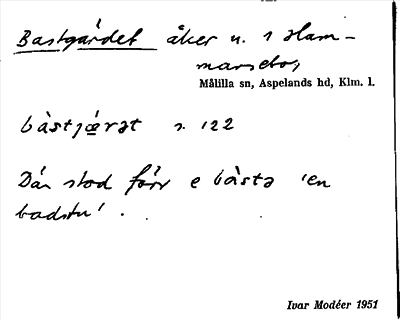 Bastgärdet åker n. 1 Ham-
marsebo,
Målilla sn, Aspelands hd, Klm. l.
bàstjæ̣rət s. 122
Där stod förr e bàstə 'en
badstu'.
Ivar Modéer 1951